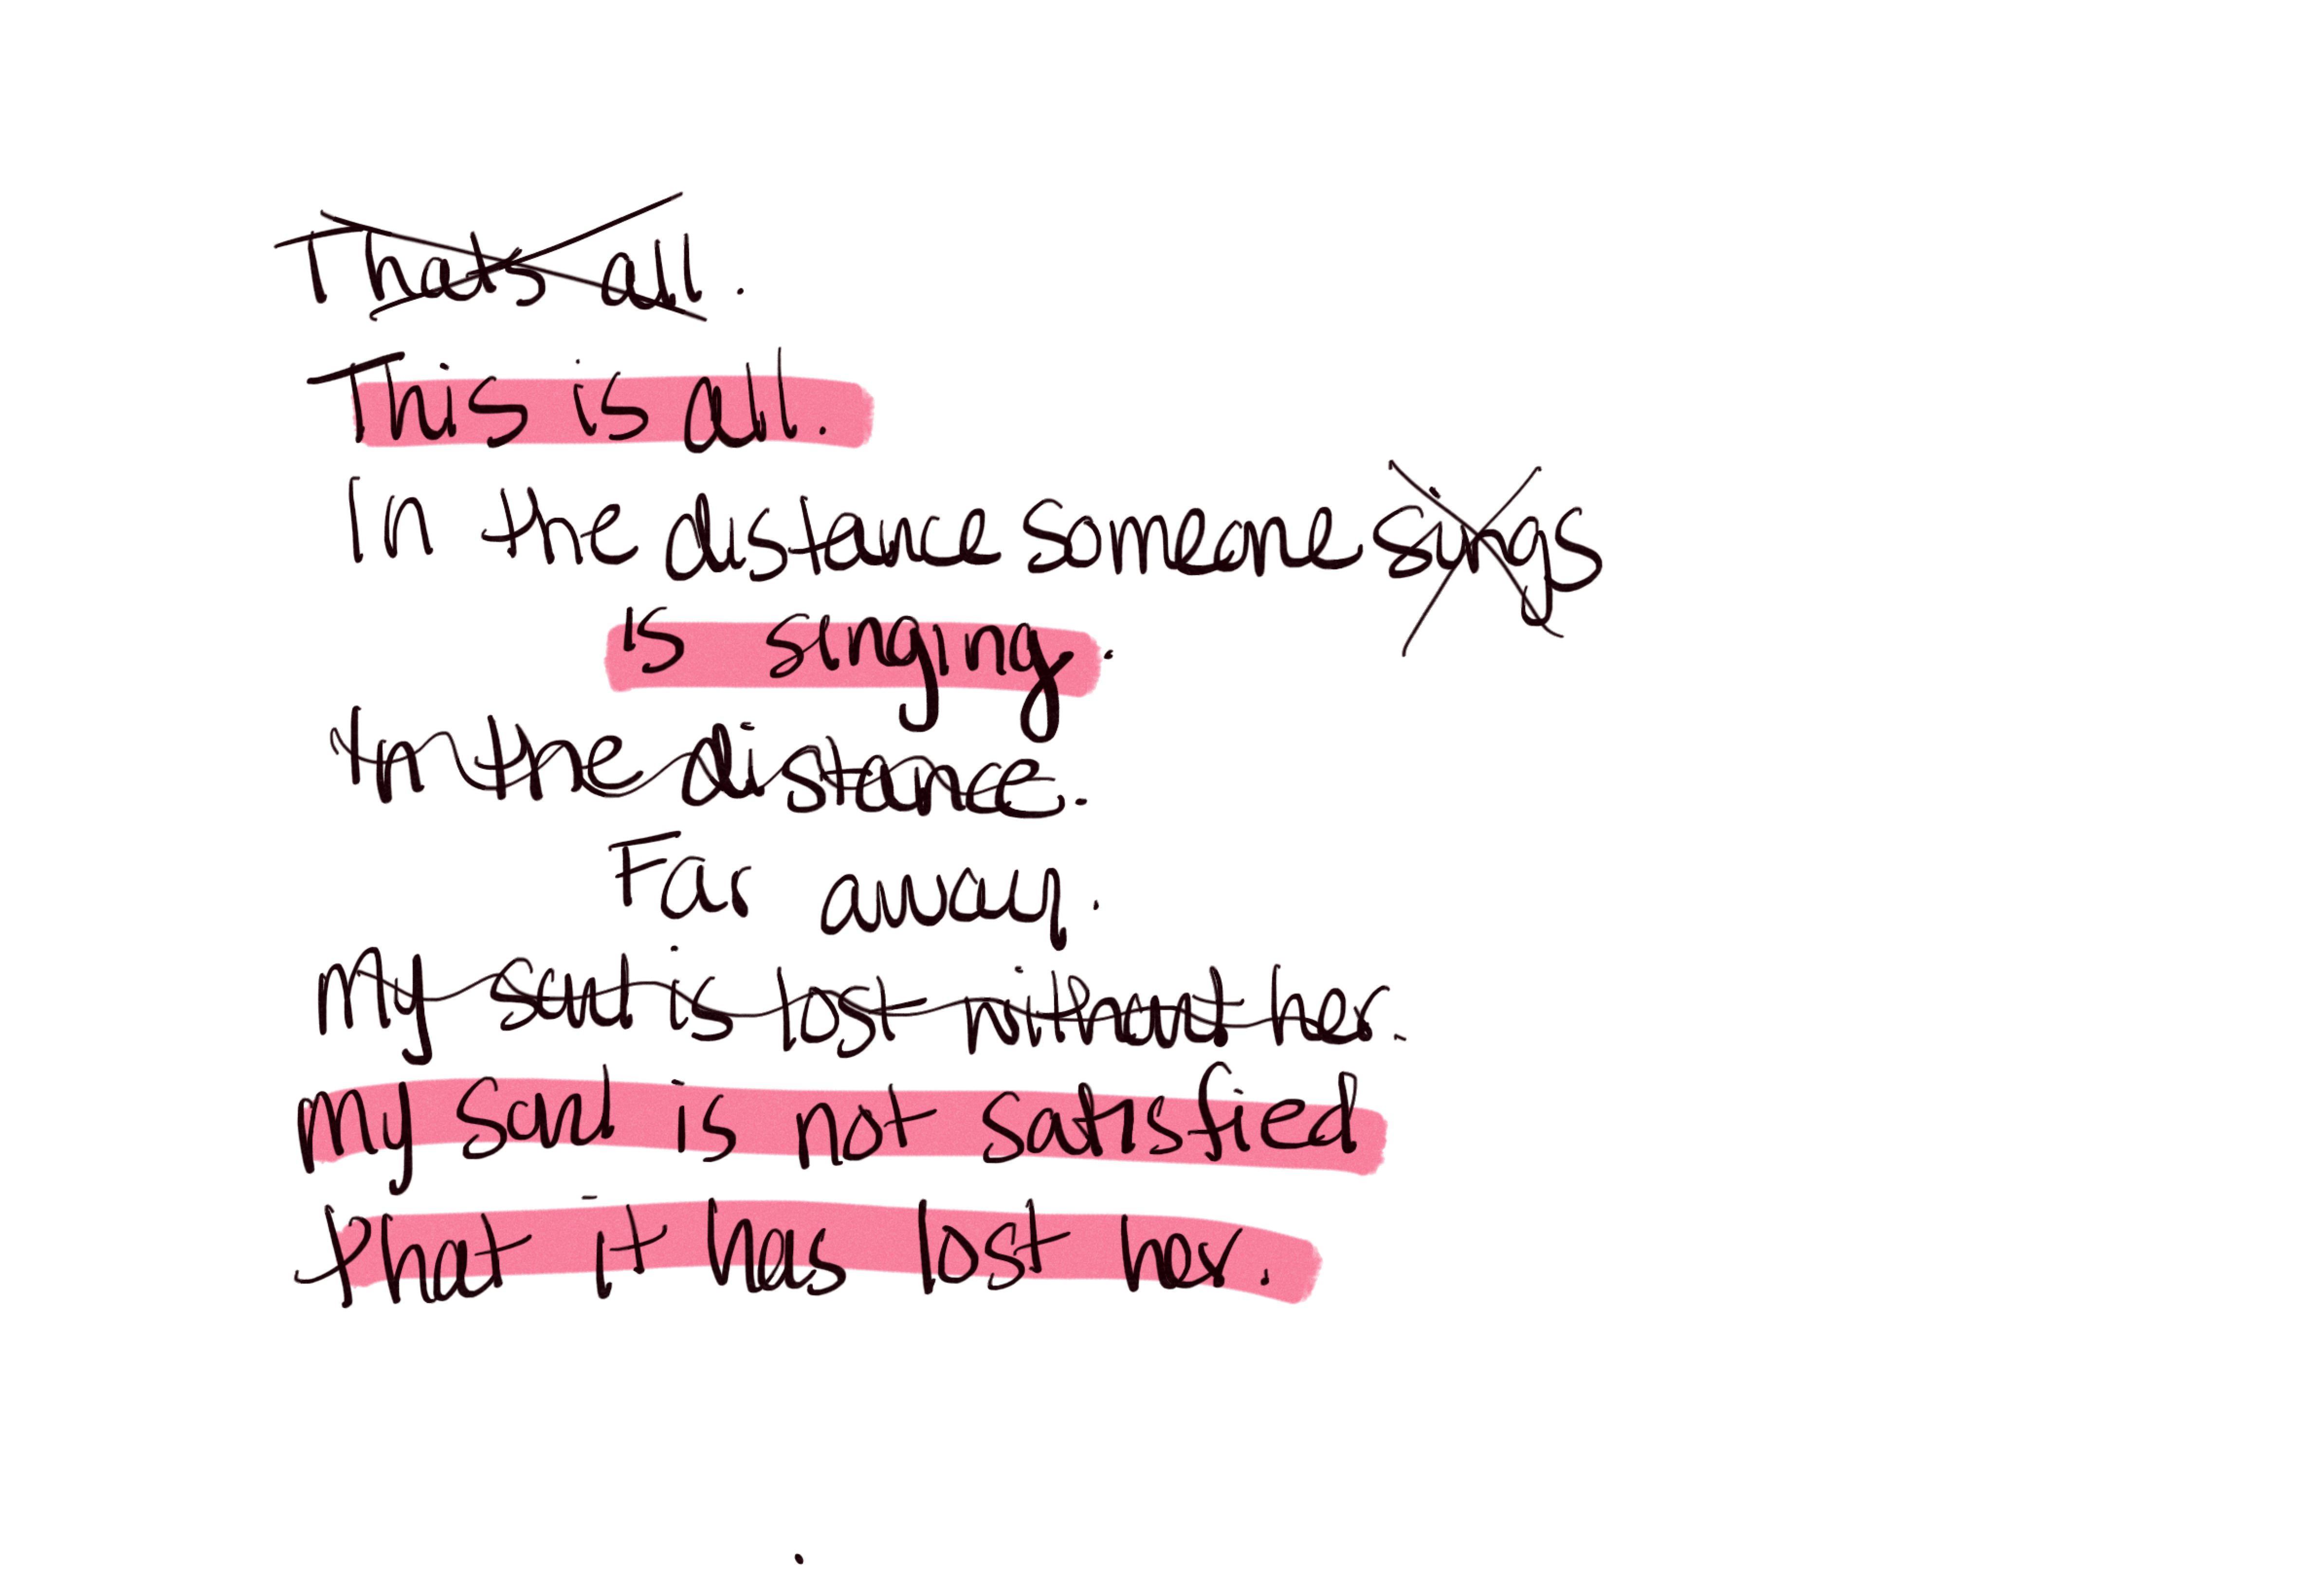 Thats all.
This is all.
In the distance someone sings
is singing.
In the distance.
Far away.
My soul is lost without her.
my soul is not satisfied
that it has lost her.